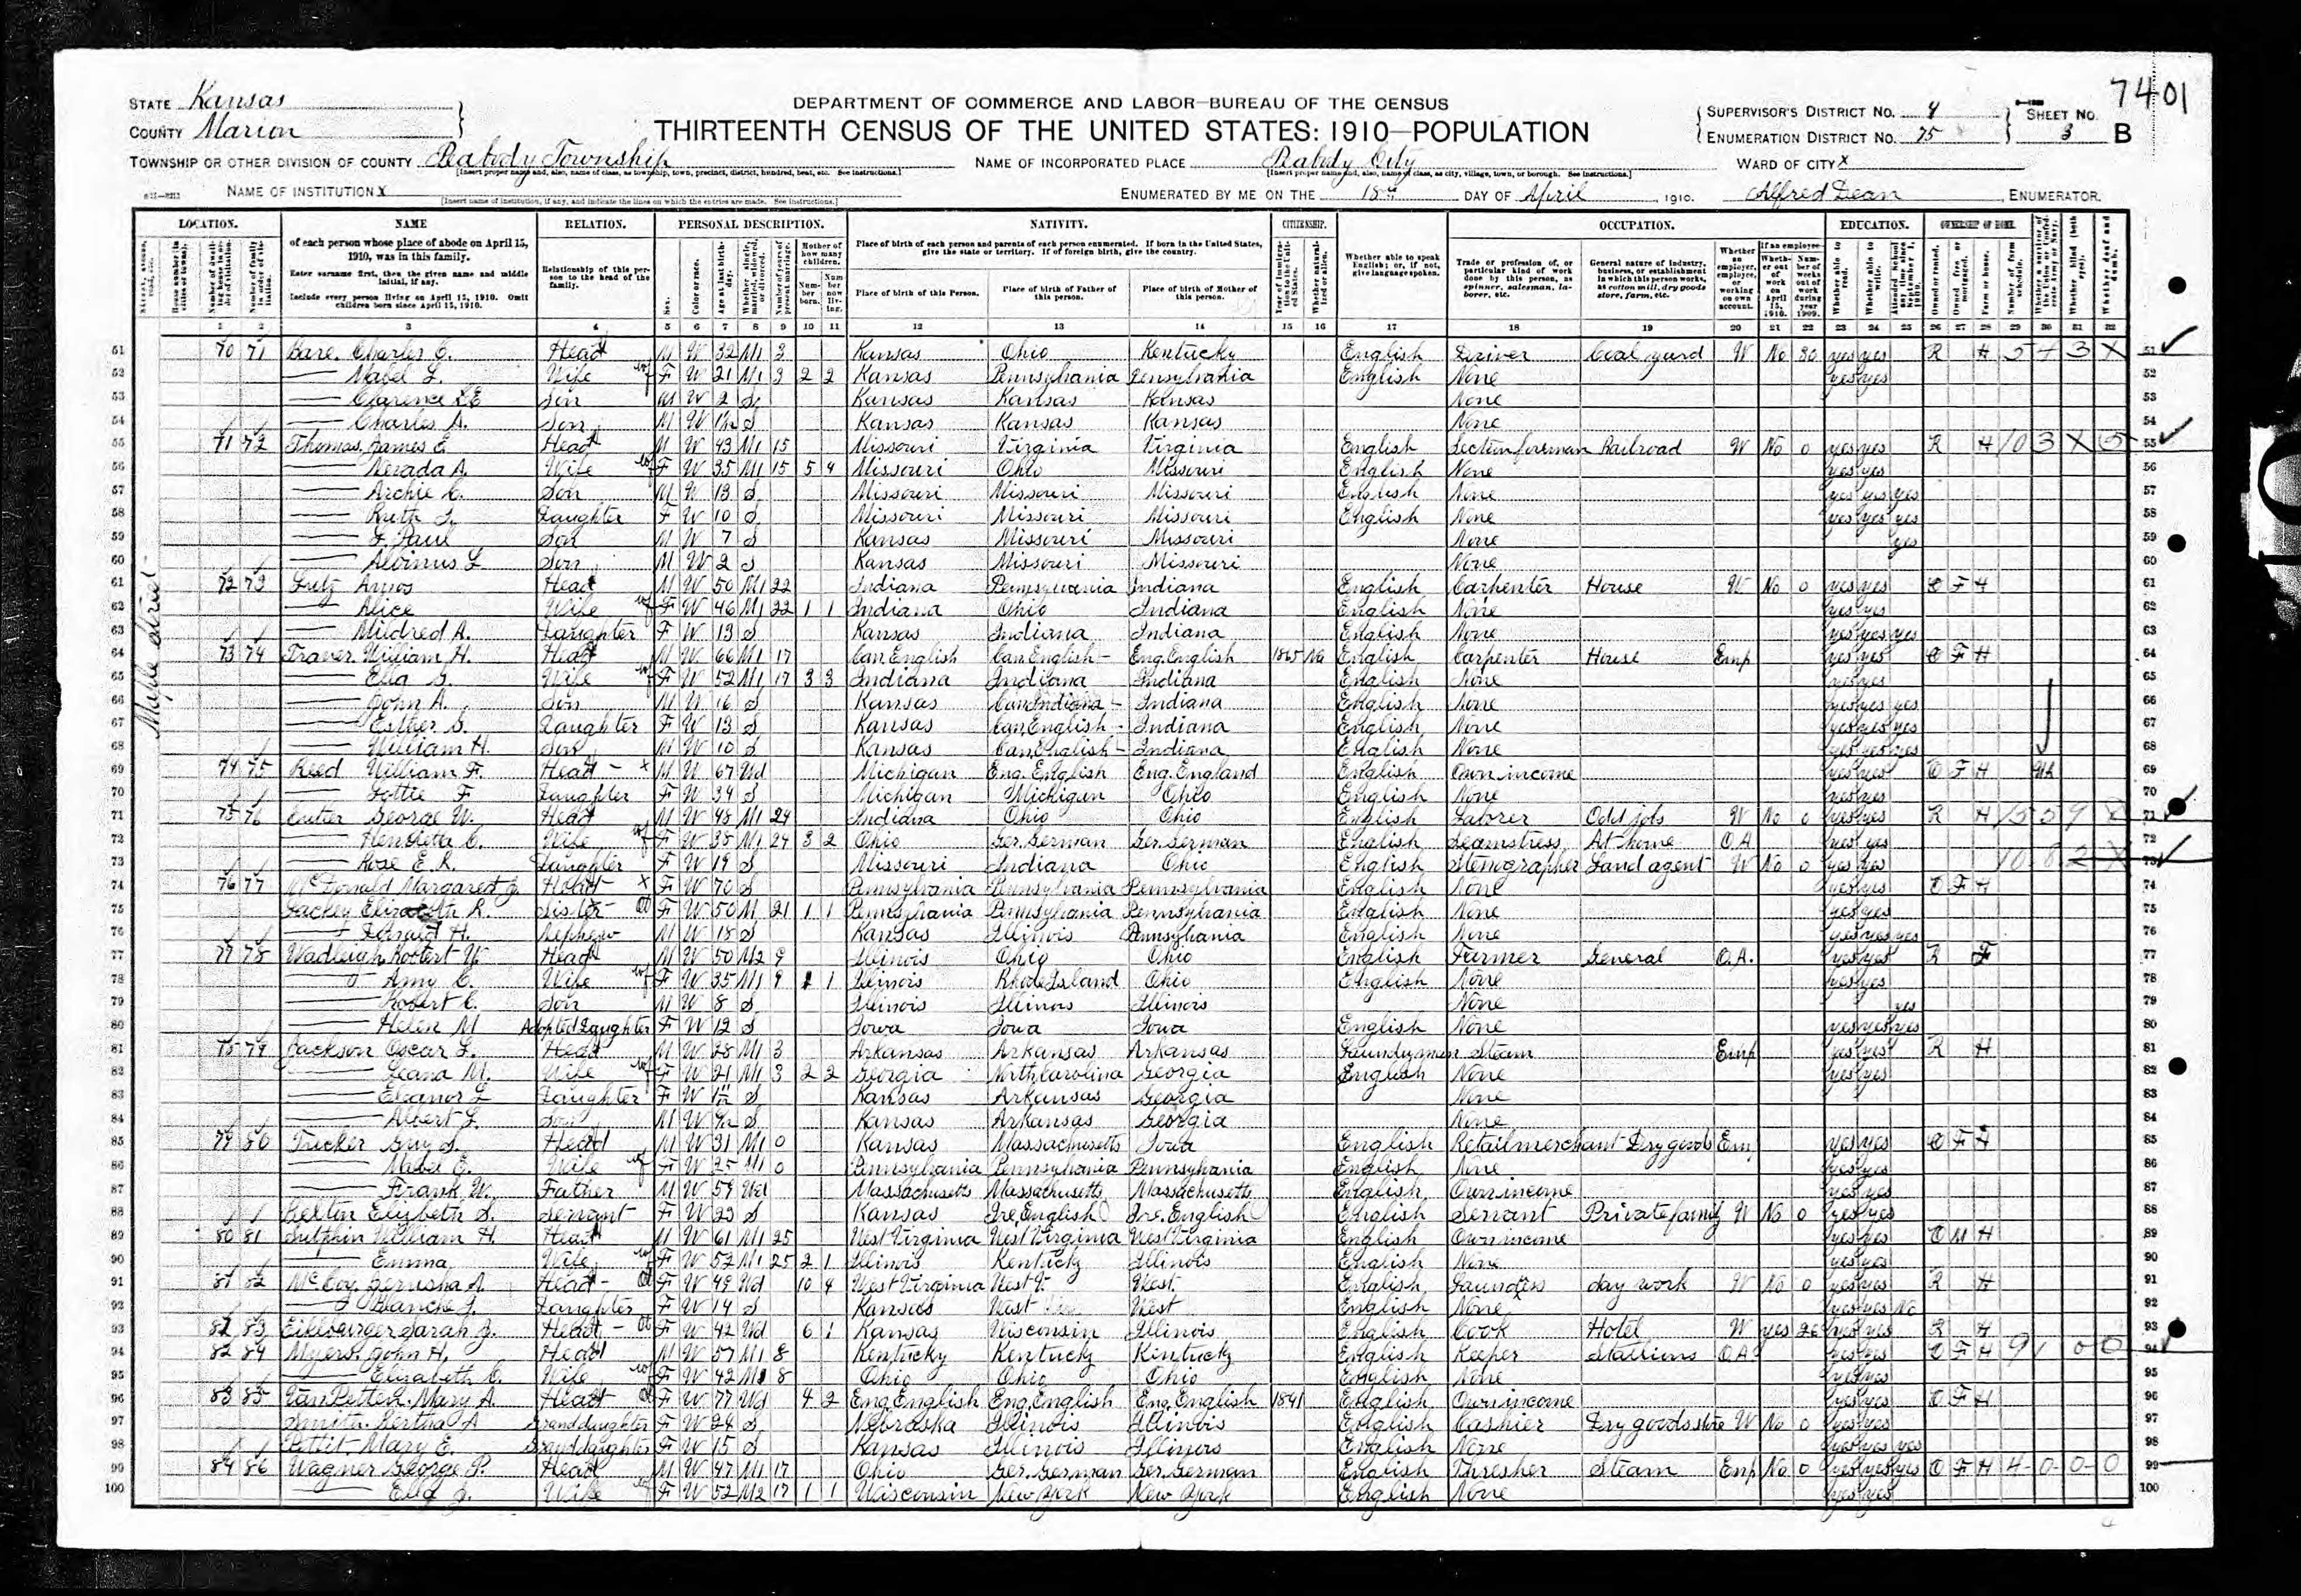 7401
STATE Kansas
COUNTY Marion
DEPARTMENT OF COMMERCE AND LABOR—BUREAU OF THE CENSUS
THIRTEENTH CENSUS OF THE UNITED STATES: 1910—POPULATION
SUPERVISOR'S DISTRICT NO. 4
ENUMERATION DISTRICT NO. 75
SHEET NO. 3 B
TOWNSHIP OR OTHER DIVISION OF COUNTY Peabody Township
NAME OF INCORPORATED PLACE Peabody City
WARD OF CITY X
NAME OF INSTITUTION X
ENUMERATED BY ME ON THE 18th DAY OF April, 1910. Alfred Dean, ENUMERATOR.
LOCATION. NAME RELATION. PERSONAL DESCRIPTION. NATIVITY. CITIZENSHIP. OCCUPATION. EDUCATION. OWNERSHIP OF HOME.
of each person whose place of abode on April 15, 1910, was in this family.
Enter surname first, then the given name and middle initial, if any.
Include every person living on April 15, 1910. Omit children born since April 15, 1910.
Relationship of this person to the head of the family.
Place of birth of each person and parents of each person enumerated. If born in the United States, give the state or territory. If of foreign birth, give the country.
Place of birth of this Person. Place of birth of Father of this person. Place of birth of Mother of this person.
Whether able to speak English; or, if not, give language spoken.
1 2 3 4 5 6 7 8 9 10 11 12 13 14 15 16 17 18 19 20 21 22 23 24 25 26 27 28 29 30 31 32
Maple Street
51 70 71 Bare, Charles C. Head M W 32 M1 3 Kansas Ohio Kentucky English Driver Coal yard W No 30 yes yes R H 5 4 3 X
52 — Mabel L. Wife F W 21 M1 3 2 2 Kansas Pennsylvania Pensylvania English None yes yes
53 — Clarence Son M W 2 S Kansas Kansas Kansas None
54 — Charles A. Son M W S Kansas Kansas Kansas None
55 71 72 Thomas, James E. Head M W 43 M1 15 Missouri Virginia Virginia English Section foreman Railroad W No 0 yes yes R H 10 3 X 5
56 — Nevada A. Wife F W 35 M1 15 5 4 Missouri Ohio Missouri English None yes yes
57 — Archie C. Son M W 13 S Missouri Missouri Missouri English None yes yes yes
58 — Ruth Daughter F W 10 S Missouri Missouri Missouri English None yes yes yes
59 — Paul Son M W 7 S Kansas Missouri Missouri None yes
60 — Albinus L Son M W 2 S Kansas Missouri Missouri None
61 72 73 Lutz Amos Head M W 50 M1 22 Indiana Pennsylvania Indiana English Carpenter House W No 0 yes yes O F H
62 — Alice Wife F W 46 M1 22 1 1 Indiana Ohio Indiana English None yes yes
63 — Mildred A. Daughter F W 13 S Kansas Indiana Indiana English None yes yes yes
64 73 74 Traver William H. Head M W 66 M1 17 Can. English Can. English Eng. English 1865 Na English Carpenter House Emp yes yes O F H
65 — Wife F W 52 M1 17 3 3 Indiana Indiana Indiana English None yes yes
66 — John A. Son M W 16 S Kansas Can. Indiana Indiana English None yes yes yes
67 — Esther S. Daughter F W 13 S Kansas Can. English Indiana English None yes yes yes
68 — William H. Son M W 10 S Kansas Can. English Indiana English None yes yes yes
69 74 75 Reed William F. Head M W 67 Wd Michigan Eng. English Eng. England English Own income yes yes O F H UA
70 — Lottie F Daughter F W 34 S Michigan Michigan Ohio English None yes yes
71 75 76 George W. Head M W 48 M1 24 Indiana Ohio Ohio English Laborer Odd jobs W No 0 yes yes R H
72 — Henrietta C. Wife F W 38 M1 24 3 2 Ohio Ger. German Ger. German English Seamstress At home O A yes yes
73 — Rose E. R. Daughter F W 19 S Missouri Indiana Ohio English Stenographer Land agent W No 0 yes yes
74 76 77 McDonald Margaret J. Head F W 70 S Pennsylvania Pennsylvania Pennsylvania English None yes yes O F H
75 Lackey Elizabeth R. Sister F W 50 M 21 1 1 Pennsylvania Pennsylvania Pennsylvania English None yes yes
76 — Donald H. Nephew M W 18 S Kansas Illinois Pennsylvania English None yes yes yes
77 77 78 Wadleigh Robert W Head M W 50 M2 9 Illinois Ohio Ohio English Farmer General O.A. yes yes R F
78 — Amy C. Wife F W 35 M1 9 1 1 Illinois Rhode Island Ohio English None yes yes
79 — Robert C. Son M W 8 S Illinois Illinois Illinois None yes
80 — Helen M Adopted Daughter F W 12 S Iowa Iowa Iowa English None yes yes yes
81 79 Jackson Oscar L. Head M W 38 M1 3 Arkansas Arkansas Arkansas Laundryman Steam Emp yes yes R H
82 — Leana M. Wife F W 21 M1 3 2 2 Georgia North Carolina Georgia English None yes yes
83 — Eleanor L Daughter F W S Kansas Arkansas Georgia None
84 — Albert L. Son M W S Kansas Arkansas Georgia None
85 79 80 Tucker Guy S. Head M W 31 M1 0 Kansas Massachusetts Iowa English Retail merchant Dry goods Em yes yes O F H
86 — Mabel E. Wife F W 25 M1 0 Pennsylvania Pennsylvania Pennsylvania English None yes yes
87 — Frank W. Father M W 59 Wd Massachusetts Massachusetts Massachusetts English Own income yes yes
88 Elizbeth S. Servant F W 23 S Kansas Ire. English Ire. English English Servant Private family W No 0 yes yes
89 80 81 Sutphin William H. Head M W 61 M1 25 West Virginia West Virginia West Virginia English Own income yes yes O M H
90 — Emma Wife F W 52 M1 25 2 1 Illinois Kentucky Illinois English None yes yes
91 81 82 McCoy, Jerusha A. Head F W 49 Wd 10 4 West Virginia West V. West. English Laundress day work W No 0 yes yes R H
92 — Blanche J. Daughter F W 14 S Kansas West West English None yes yes No
93 82 83 Sarah J. Head F W 42 Wd 6 1 Kansas Wisconsin Illinois English Cook Hotel W yes 26 yes yes R H
94 82 84 Myers, John H. Head M W 57 M1 8 Kentucky Kentucky Kentucky English Keeper Stallions O A yes yes O F H 9 1 0 0
95 — Elizabeth C. Wife F W 42 M 8 Ohio Ohio Ohio English None yes yes
96 83 85 Van Petten, Mary A. Head F W 77 Wd 4 2 Eng. English Eng. English Eng. English 1841 English Own income yes yes O F H
97 Smith, Bertha A Granddaughter F W 28 S Nebraska Illinois Illinois English Cashier Dry goods store W No 0 yes yes
98 Pettit, Mary E. Granddaughter F W 15 S Kansas Illinois Illinois English None yes yes yes
99 84 86 Wagner George P. Head M W 47 M1 17 Ohio Ger. German Ger. German English Thresher Steam Emp No 0 yes yes yes O F H 4-0-0-0
100 — Ella J. Wife F W 52 M2 17 1 1 Wisconsin New York New York English None yes yes